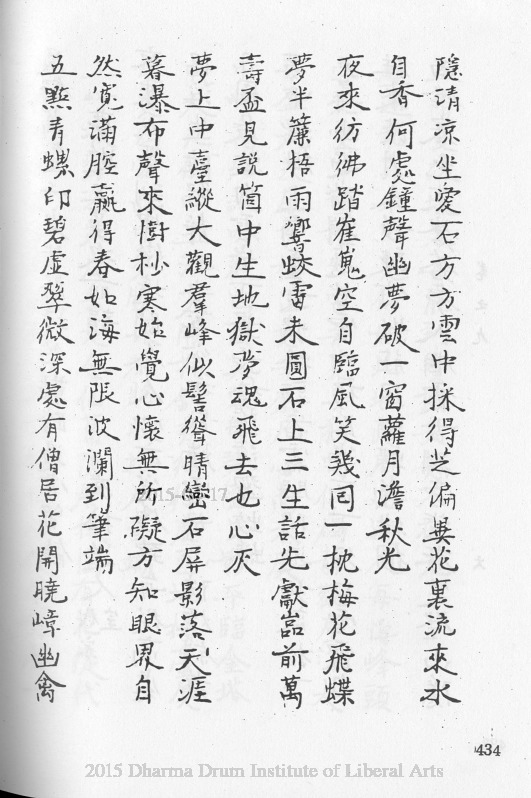 隱清凉坐愛石方方雲中採得芝偏異花裏流來水
自香何處鐘聲幽夢破一窗蘿月澹秋光
夜來彷彿踏崔嵬空自臨風笑幾回一枕梅花飛蝶
夢半簾梧雨響蛟雷未圓石上三生話先獻嵓前萬
壽盃見說箇中生地獄夢魂飛去也心灰
夢上中臺縱大觀羣峰似髻聳晴巒石屏影落天涯
暮瀑布聲來樹杪寒始覺心懷無所礙方知眼界自
然寬滿腔贏得春如海無限波瀾到筆端
五點青螺印碧虛翠微深處有僧居花開曉嶂幽禽
434
2015 Dharma Drum Institute of Liberal Arts